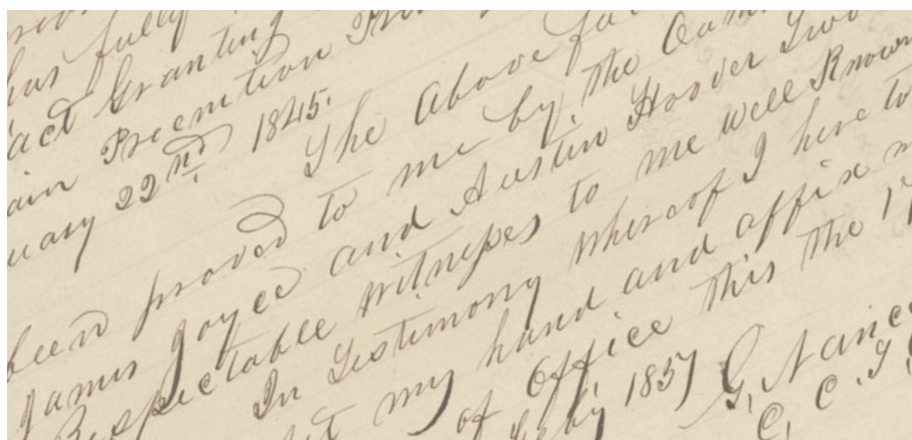 has fully
act Granting
ain Preemtion
uary 22nd 1845.
The Above fa
been proved to me by the Oa
James Joyce and Austin Hoover Two
Respectable Witnesses to me well Known
In Testimony Whereof I here to
my hand and affix m
of Office this the 17
1857
G, Nance
C, C. J,